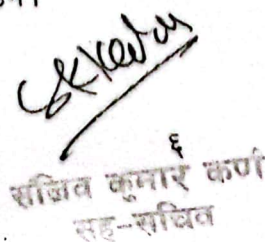 ६
सञ्जिव कुमार कर्ण
सह-सचिव